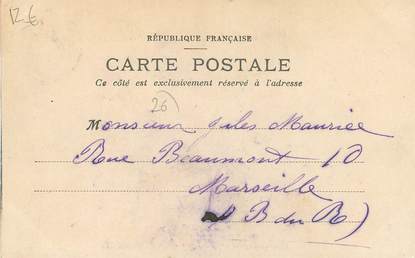 12 €
RÉPUBLIQUE FRANÇAISE
CARTE POSTALE
Ce côté est exclusivement réservé à l'adresse
26)
Monsieur Jules Maurice
Rue Beaumont 10
Marseille
B du R)